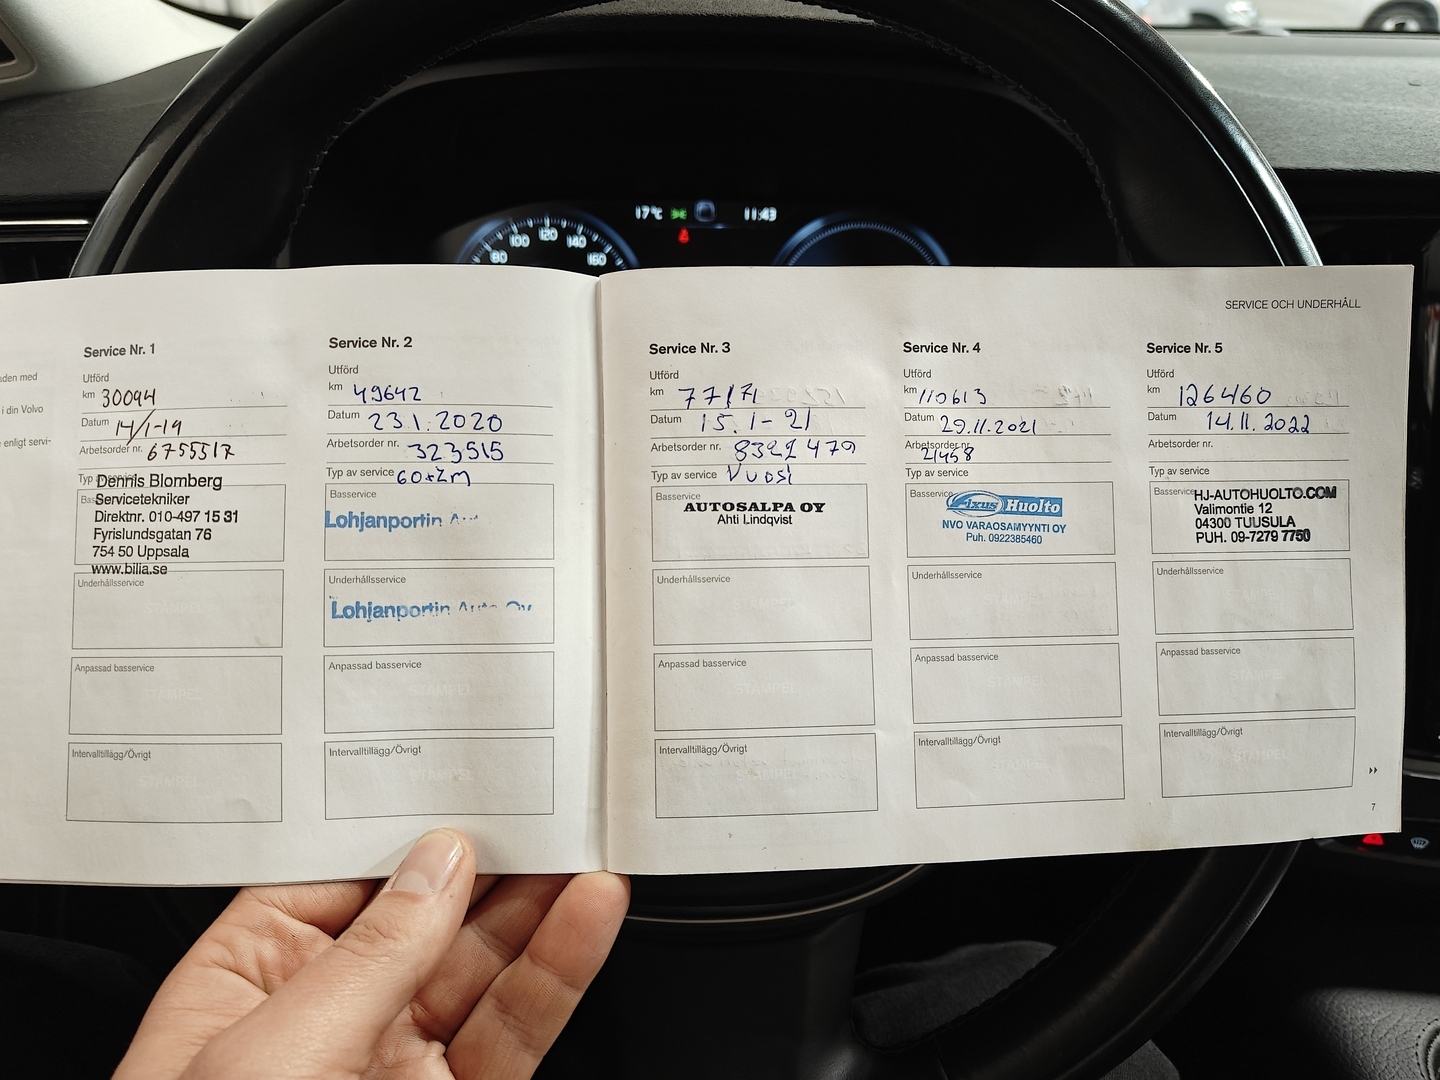 17°C 11:43
80 100 120 140 160
SERVICE OCH UNDERHÅLL
den med
i din Volvo
enligt servi-
Service Nr. 1
Utförd
km 30094
Datum 14/1-19
Arbetsorder nr. 6755517
Typ
Dennis Blomberg
Servicetekniker
Direktnr. 010-497 15 31
Fyrislundsgatan 76
754 50 Uppsala
www.bilia.se
Underhållsservice
STÄMPEL
Anpassad basservice
STÄMPEL
Intervalltillägg/Övrigt
STÄMPEL
Service Nr. 2
Utförd
km 49642
Datum 23.1.2020
Arbetsorder nr. 323515
Typ av service 60+Zm
Basservice
Lohjanportin
Underhållsservice
Lohjanportin Auto Oy
Anpassad basservice
STÄMPEL
Intervalltillägg/Övrigt
STÄMPEL
Service Nr. 3
Utförd
km 77171
Datum 15.1-21
Arbetsorder nr. 8321479
Typ av service Vuosi
Basservice
AUTOSALPA OY
Ahti Lindqvist
Underhållsservice
STÄMPEL
Anpassad basservice
STÄMPEL
Intervalltillägg/Övrigt
STÄMPEL
Service Nr. 4
Utförd
km 110613
Datum 29.11.2021
Arbetsorder nr.
21458
Typ av service
Basservice
Axus Huolto
NVO VARAOSAMYYNTI OY
Puh. 0922385460
Underhållsservice
STÄMPEL
Anpassad basservice
STÄMPEL
Intervalltillägg/Övrigt
STÄMPEL
Service Nr. 5
Utförd
km 126460
Datum 14.11.2022
Arbetsorder nr.
Typ av service
Basservice
HJ-AUTOHUOLTO.COM
Valimontie 12
04300 TUUSULA
PUH. 09-7279 7750
Underhållsservice
STÄMPEL
Anpassad basservice
STÄMPEL
Intervalltillägg/Övrigt
STÄMPEL
7